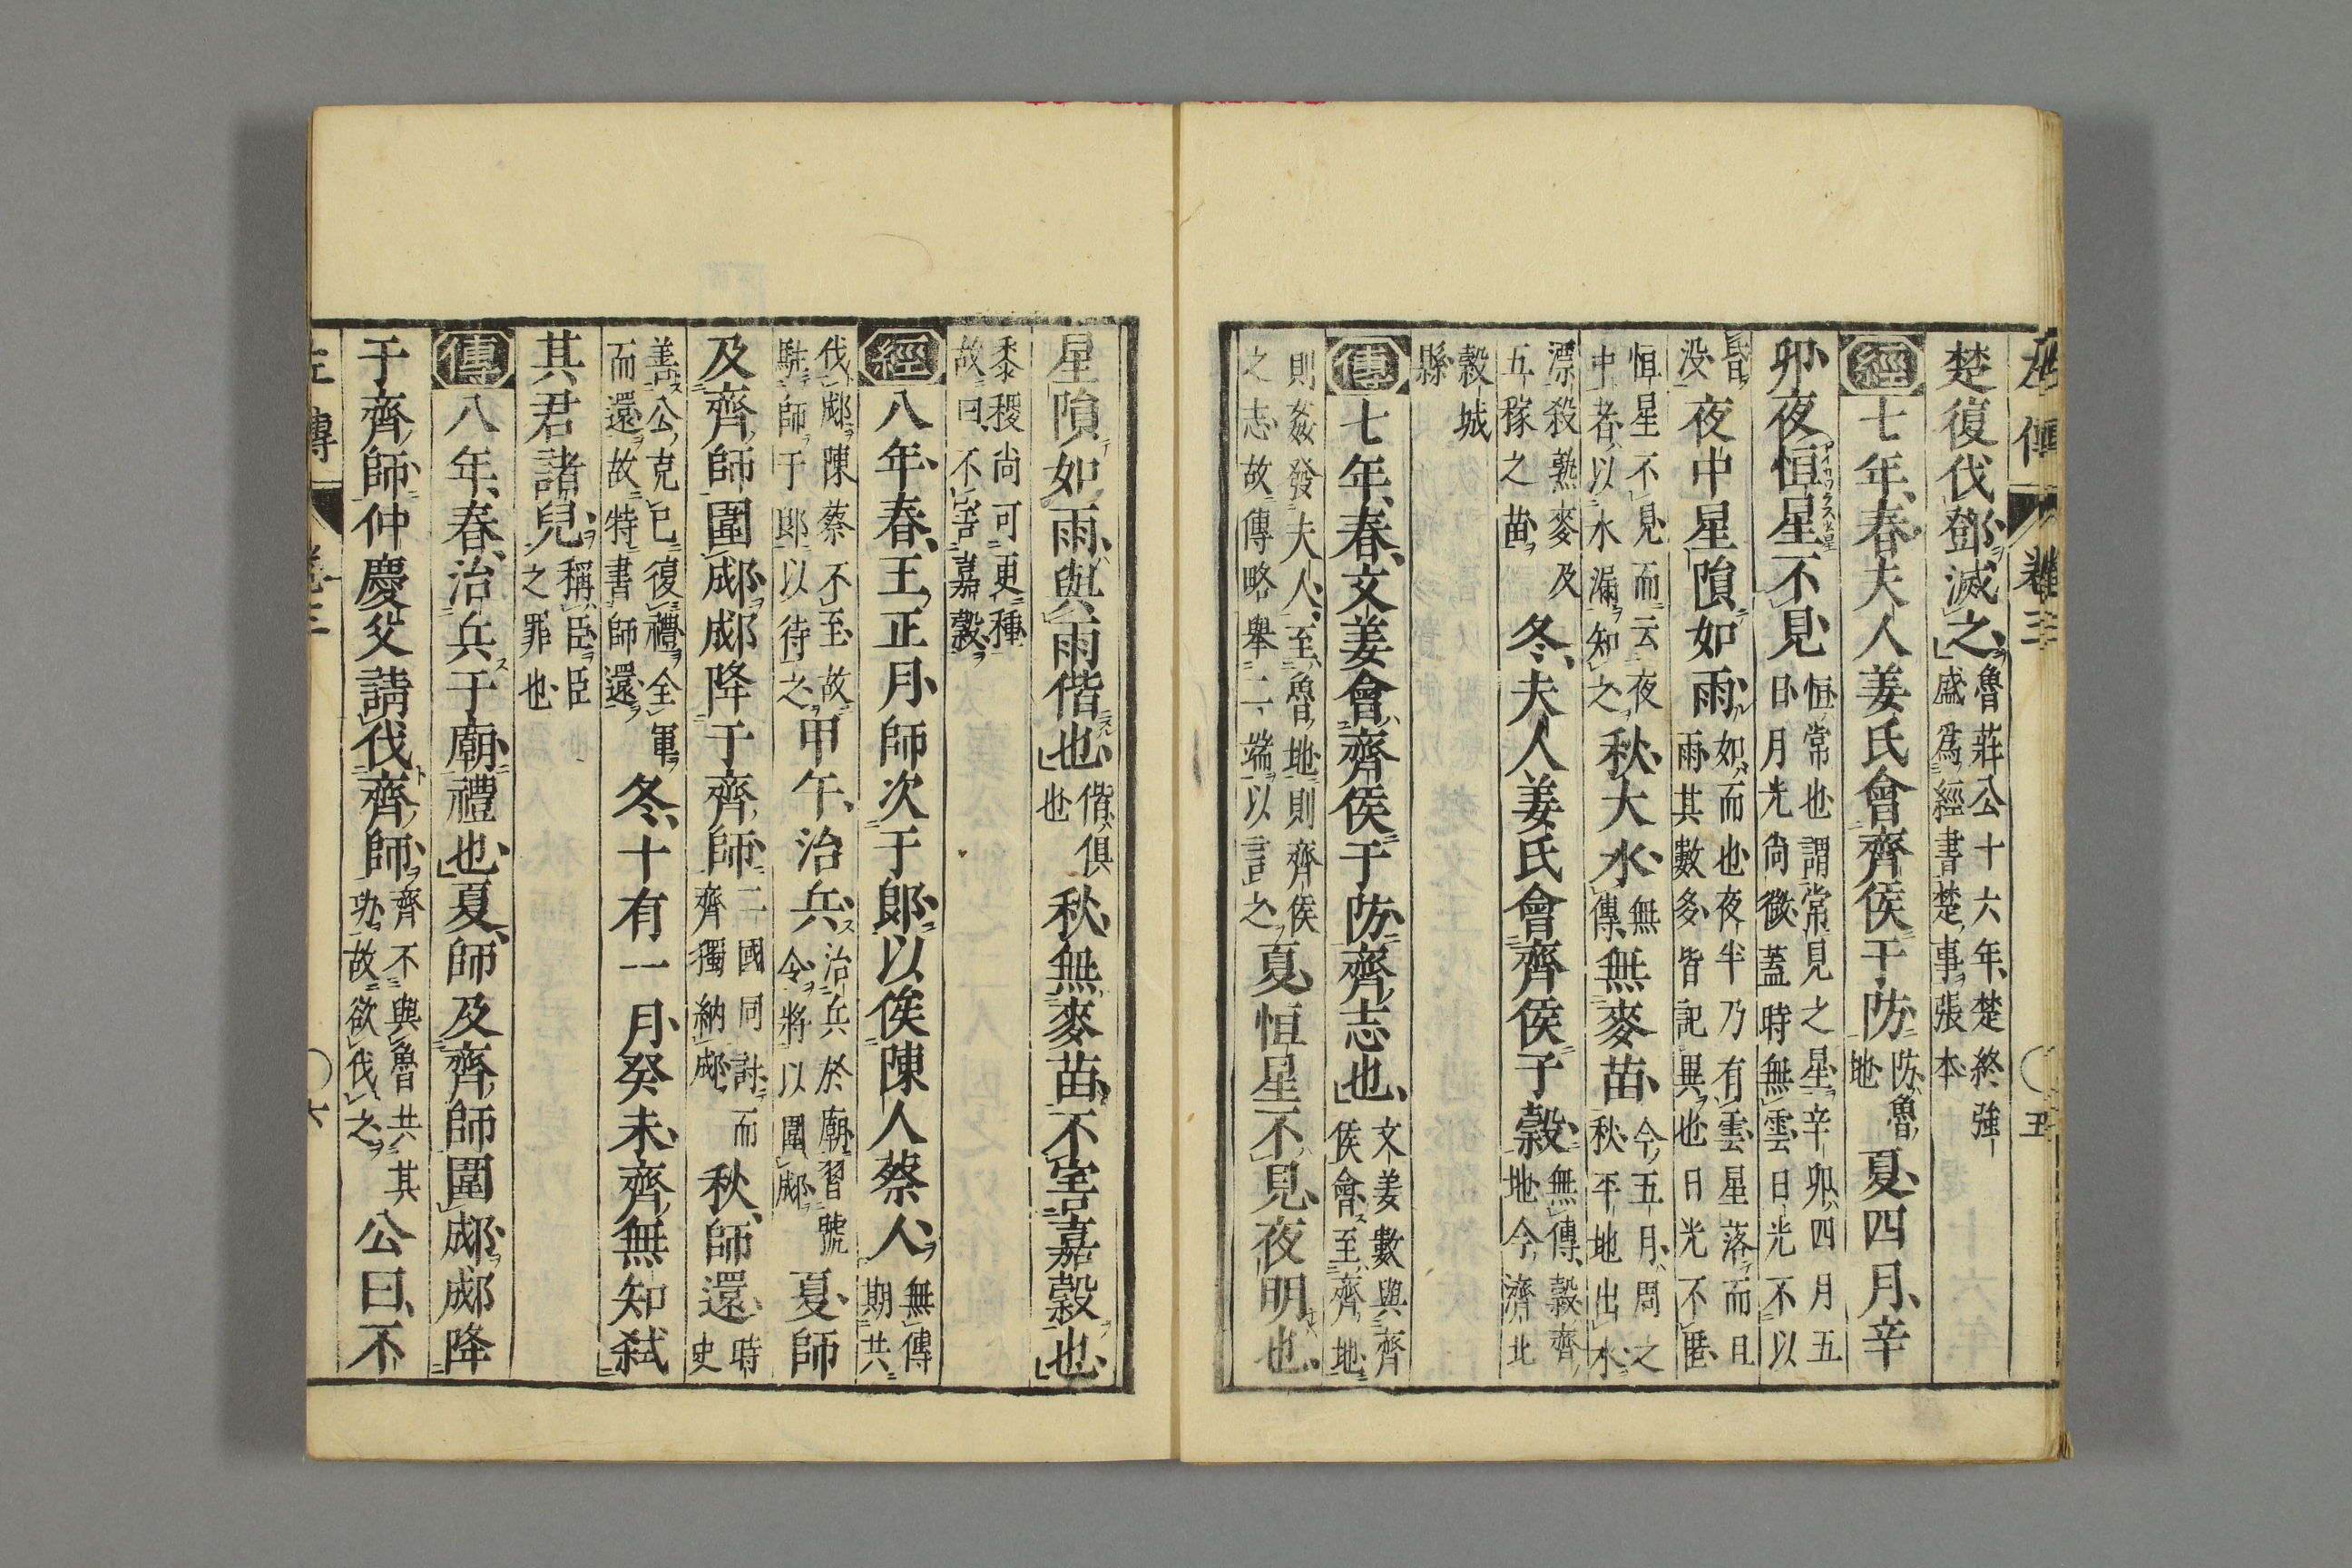 左傳 卷三 五
楚復伐鄧滅之魯莊公十六年楚終強盛爲經書楚事張本
經七年春夫人姜氏會齊侯于防防魯地夏四月辛
卯夜恒星不見恒常也謂常見之星辛卯四月五日月光尚微蓋時無雲日光不以
昏没夜中星隕如雨如而也夜半乃有雲星落而且雨其數多皆記異也日光不匿
恒星不見而云夜中者以水漏知之秋大水無傳無麥苗今五月周之秋平地出水
漂殺熟麥及五稼之苗冬夫人姜氏會齊侯于穀無傳穀齊地今濟北
穀城縣
傳七年春文姜會齊侯于防齊志也文姜數與齊侯會至齊地
則姦發夫人至魯地則齊侯之志故傳略舉二端以言之夏恒星不見夜明也
星隕如雨與雨偕也偕俱也秋無麥苗不害嘉穀也
黍稷尚可更種故曰不害嘉穀
經八年春王正月師次于郎以俟陳人蔡人無傳期共
伐郕陳蔡不至故駐師于郎以待之甲午治兵治兵於廟習號令將以圍郕夏師
及齊師圍郕郕降于齊師二國同討而齊獨納郕秋師還時史
善公克己復禮全軍而還故特書師還冬十有一月癸未齊無知弑
其君諸兒稱臣臣之罪也
傳八年春治兵于廟禮也夏師及齊師圍郕郕降
于齊師仲慶父請伐齊師齊不與魯共其功故欲伐之公曰不
左傳 卷三 六